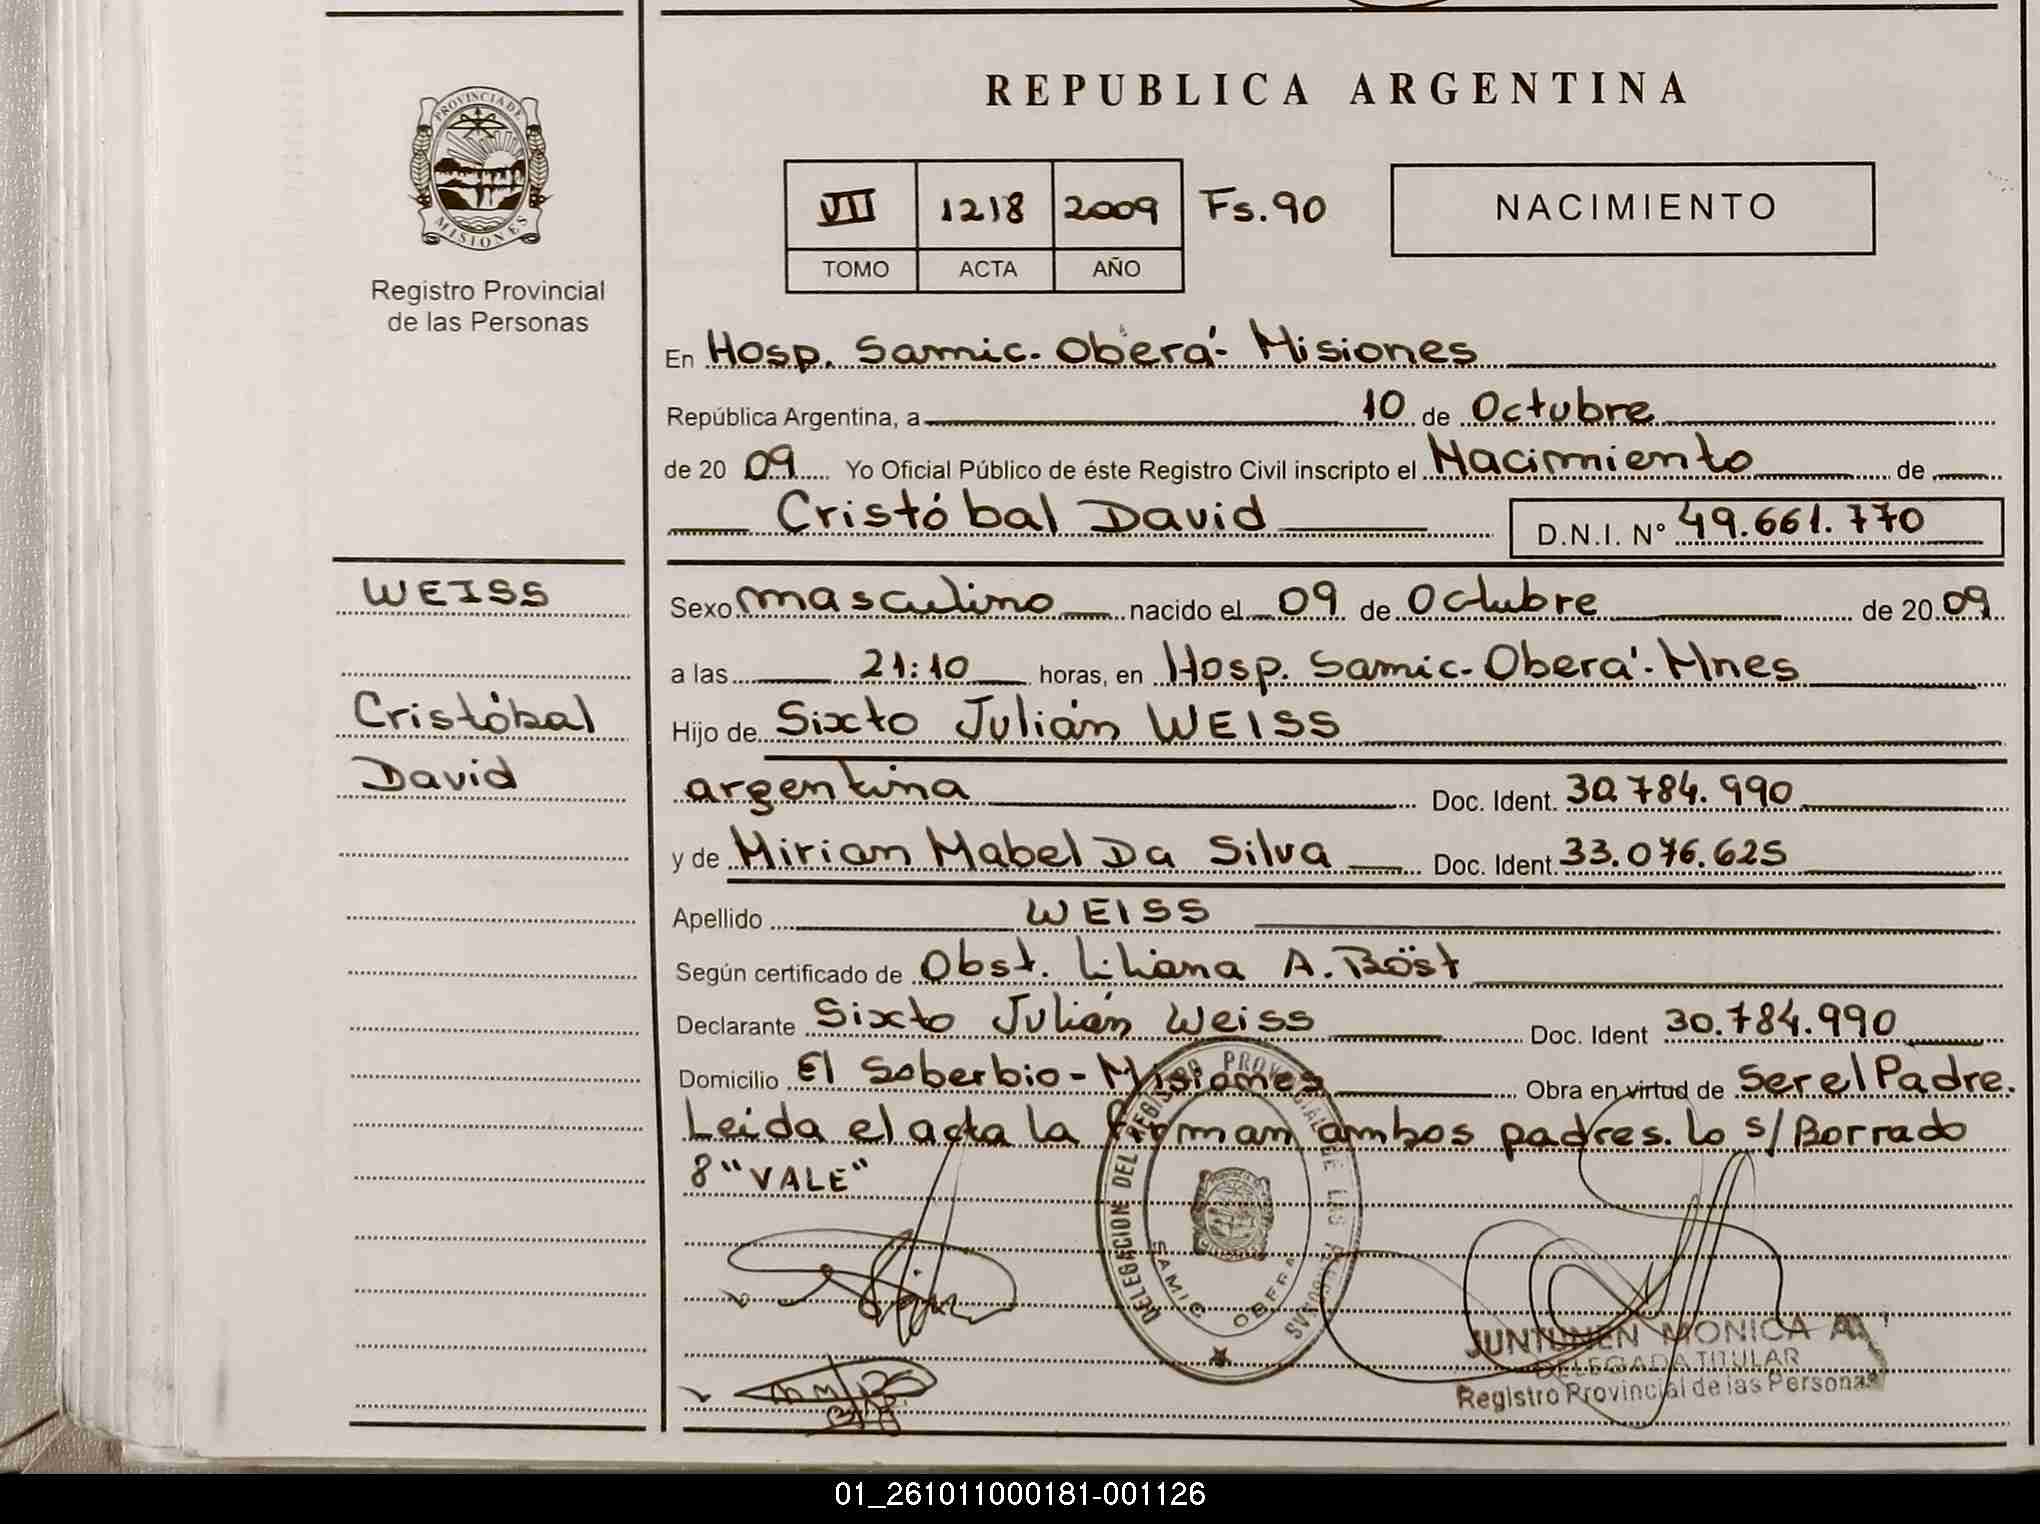 REPUBLICA ARGENTINA
PROVINCIA DE
MISIONES
Registro Provincial
de las Personas
VII 1218 2009 Fs. 90
TOMO ACTA AÑO
NACIMIENTO
En Hosp. Samic - Oberá - Misiones
República Argentina, a 10 de Octubre
de 20 09 Yo Oficial Público de éste Registro Civil inscripto el Nacimiento de
Cristóbal David D.N.I. Nº 49.661.770
WEISS
Cristóbal
David
Sexo masculino nacido el 09 de Octubre de 20 09
a las 21:10 horas, en Hosp. Samic - Oberá - Mnes
Hijo de Sixto Julián WEISS
argentina Doc. Ident. 30.784.990
y de Mirian Mabel Da Silva Doc. Ident. 33.076.625
Apellido WEISS
Según certificado de Obst. Liliana A. Böst
Declarante Sixto Julián Weiss Doc. Ident 30.784.990
Domicilio El Soberbio - Misiones Obra en virtud de Ser el Padre.
Leída el acta la firman ambos padres. Lo s/ Borrado
8 "VALE"
DELEGACION DEL REGISTRO PROVINCIAL DE LAS PERSONAS
SAMIC OBERA
JUNTUNEN MONICA A.
DELEGADA TITULAR
Registro Provincial de las Personas
01_261011000181-001126